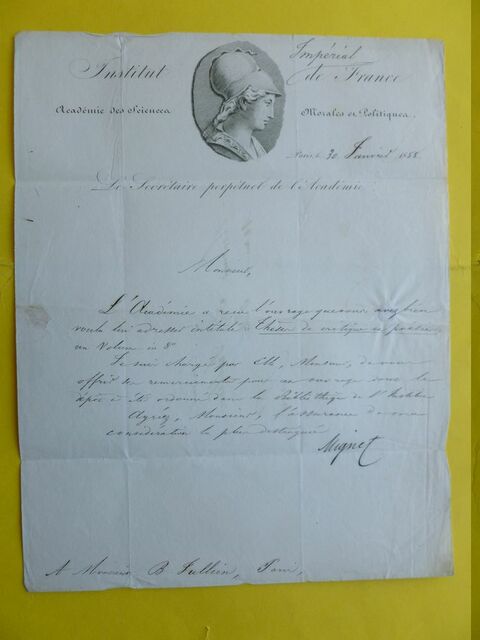 Institut Impérial de France
Académie des Sciences Morales et Politiques.
Paris le 30 Janvier 1858
Le Secrétaire perpétuel de l'Académie
Monsieur,
L'Académie a reçu l'ouvrage que vous avez bien
voulu lui adresser intitulé Thèses de critique et poésies
un Volume in 8°
Je suis chargé par Elle, Monsieur, de vous
offrir ses remerciements pour cet ouvrage dont le
dépôt a été ordonné dans la Bibliothèque de l'Institut
Agréez, Monsieur, l'assurance de ma
considération la plus distinguée
Mignet
A Monsieur B Jullien, Paris,